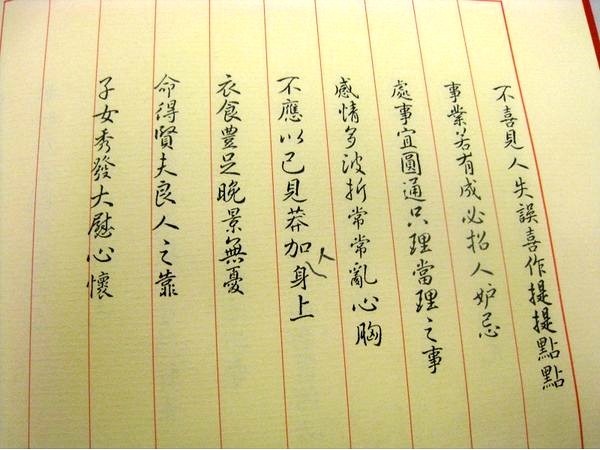 不喜見人失誤喜作提提點點
事業若有成必招人妒忌
處事宜圓通只理當理之事
感情多波折常常亂心胸
不應以己見莽加人身上
衣食豐足晚景無憂
命得賢夫良人之靠
子女秀發大慰心懷